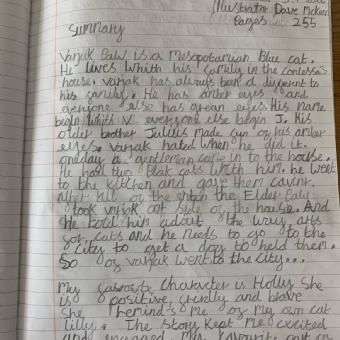 Illustrator Dave McKean
Pages 255
Summary
Varjak Paw is a Mesopotamian Blue cat.
He lives whith his family in the contessa's
house. varjak has always been a diffrent to
his family. He has amber eyes and
everyone else has green eyes. His name
begin whith V everyone else begin J. His
older brother Julius made fun of his amber
eyes. Varjak hated when he did it.
oneday a gentleman came in to the house.
He had two black cats whith him. he went
to the kitchen and gave them caviar.
After all of the the Elder Paw
took varjak out side of the house. And
He told him about the way arts
for cats and he needs to go to the
city to get a dog to held them.
So of varjak went to the city...
My favorite character is Holly She
is positive, frendly and brave
She reminds me of my own cat
Lilly. The story kept me excited
and engaged. My favourite part on